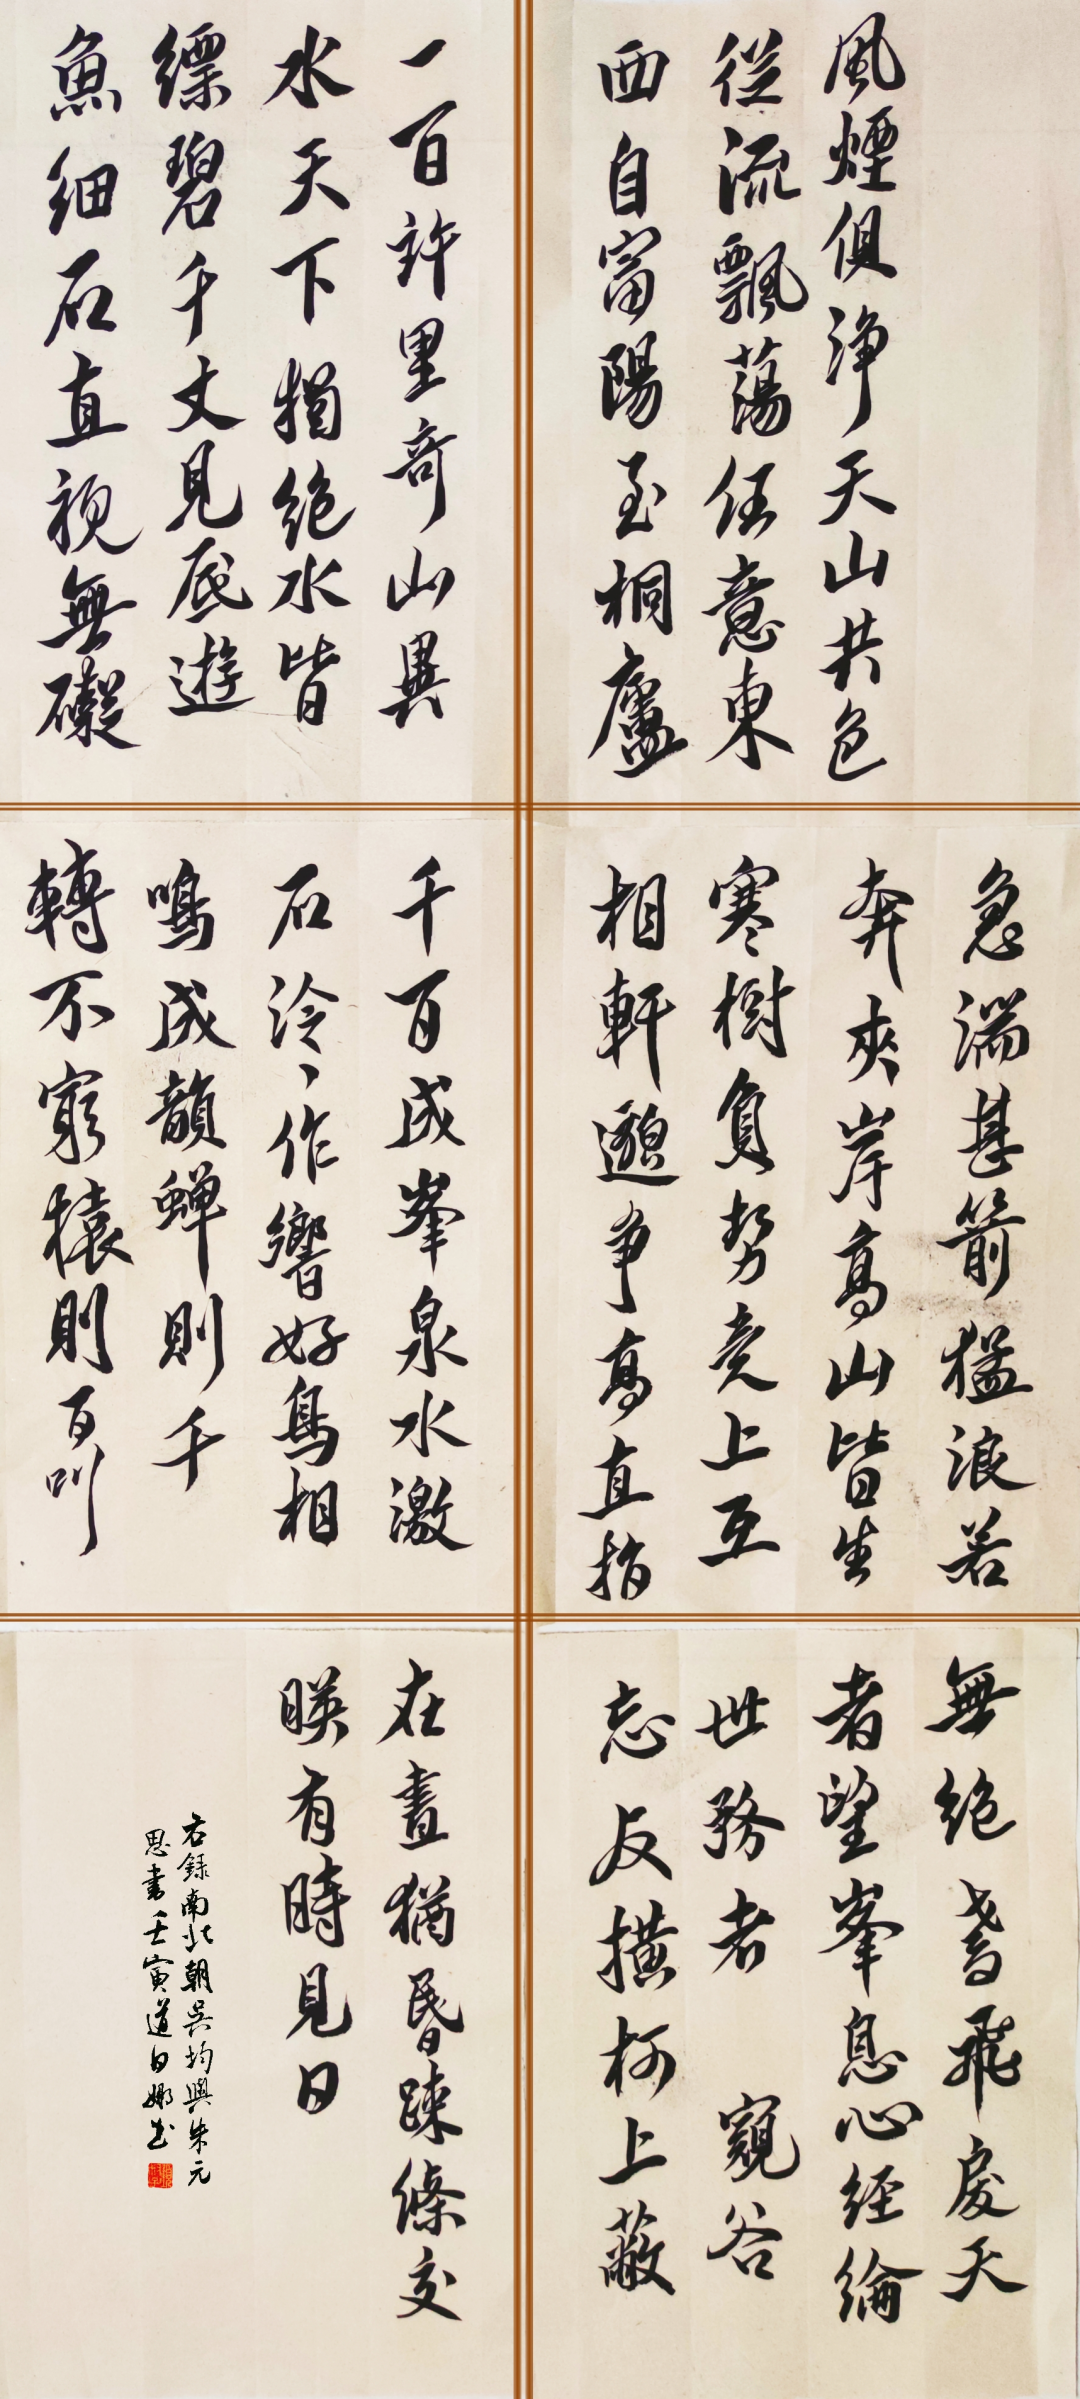 風煙俱淨天山共色
從流飄蕩任意東
西自富陽至桐廬
一百許里奇山異
水天下獨絕水皆
縹碧千丈見底遊
魚細石直視無礙
急湍甚箭猛浪若
奔夾岸高山皆生
寒樹負勢競上互
相軒邈爭高直指
千百成峯泉水激
石泠丶作響好鳥相
鳴成韻蟬則千
轉不窮猿則百叫
無絕鳶飛戾天
者望峯息心經綸
世務者窺谷
忘反橫柯上蔽
在晝猶昏疎條交
映有時見日
右錄南北朝吳均與朱元
思書壬寅道日娜書